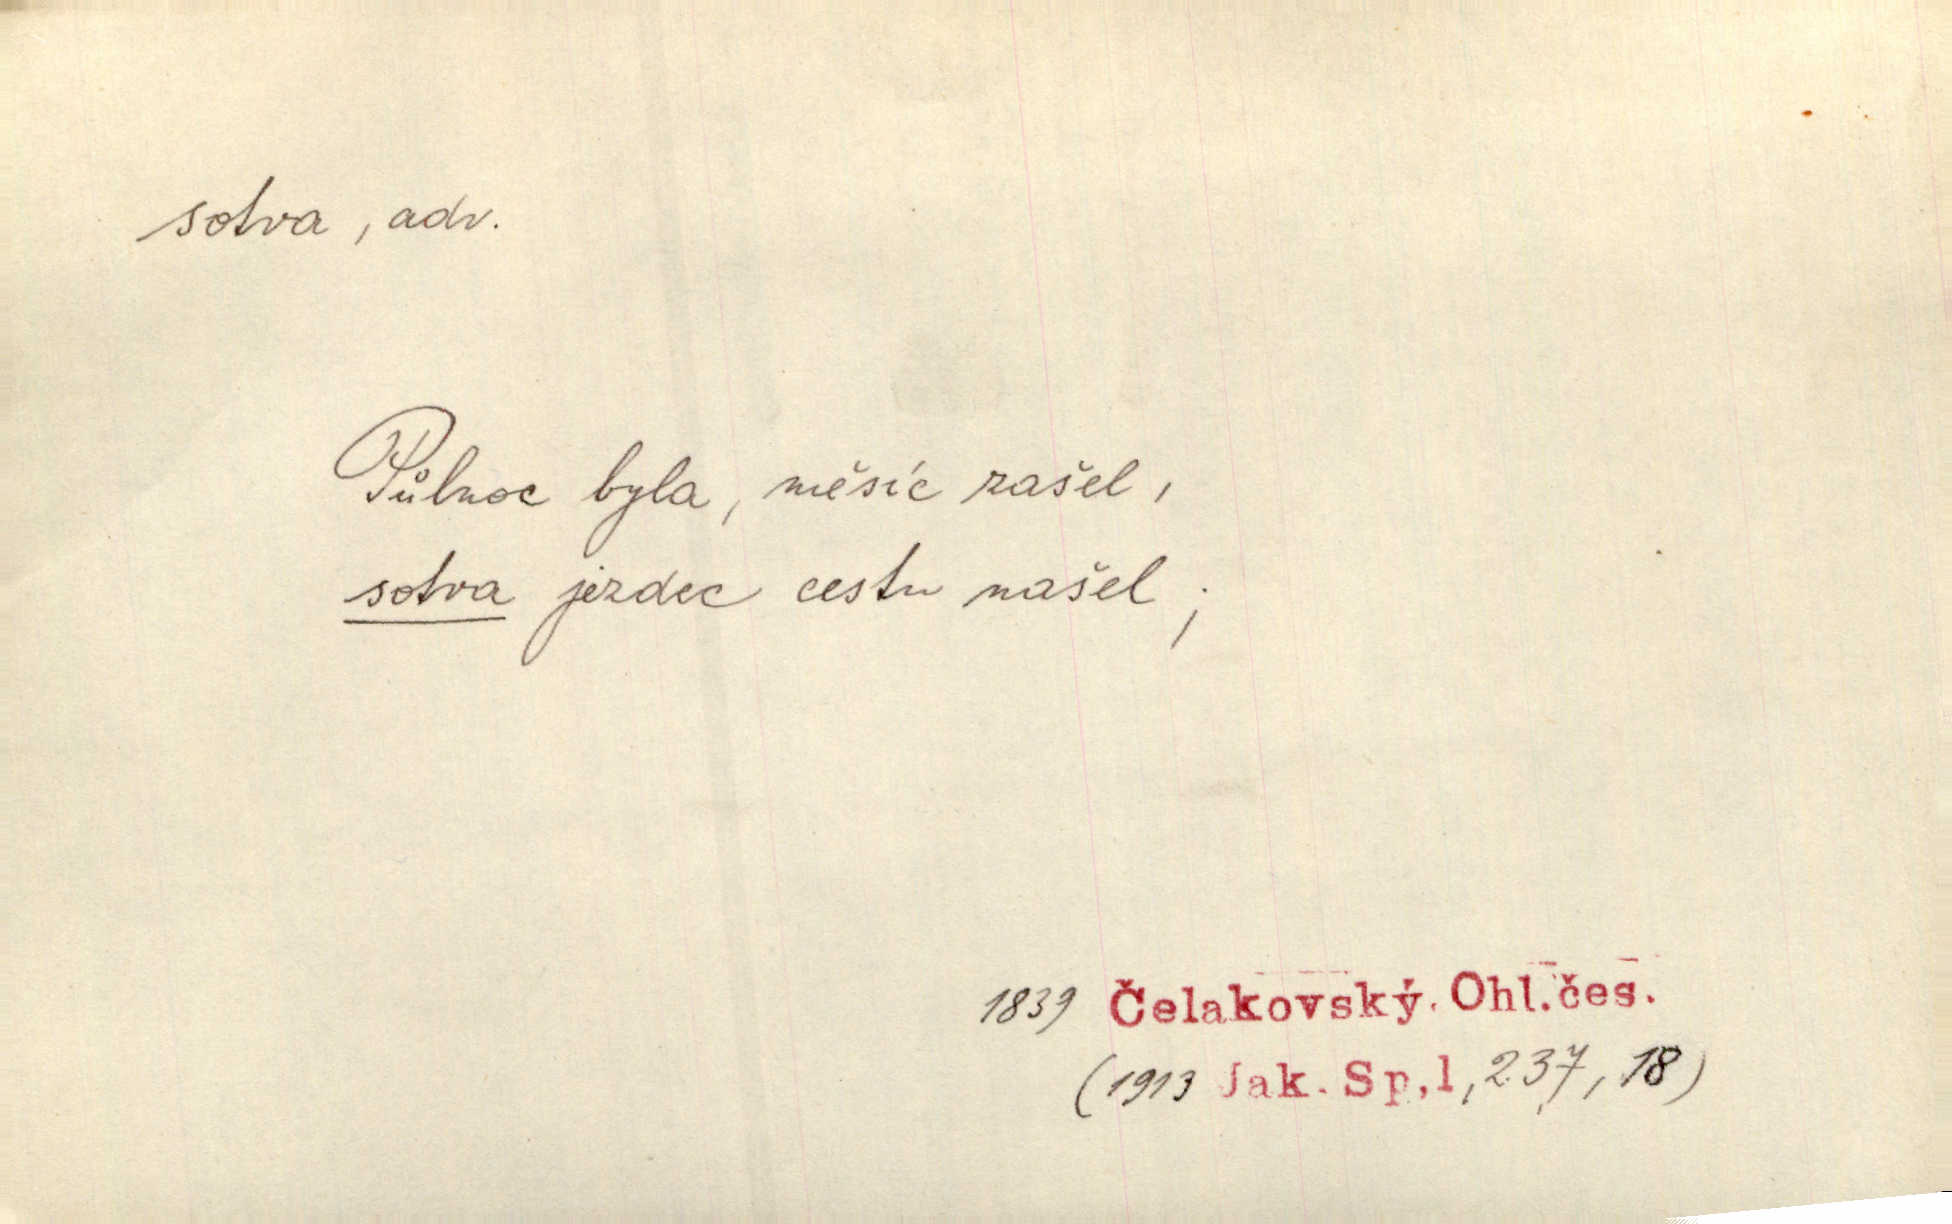 sotva, adv.
Půlnoc byla, měsíc zašel,
sotva jezdec cestu našel;
1839 Čelakovský. Ohl.čes.
(1913 Jak. Sp,1, 237, 18)